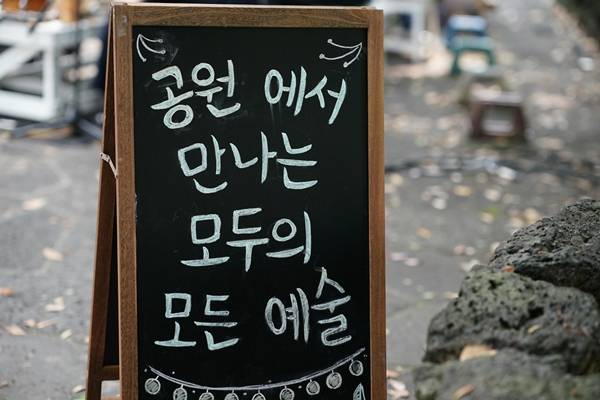 공원 에서
만나는
모두의
모든 예술